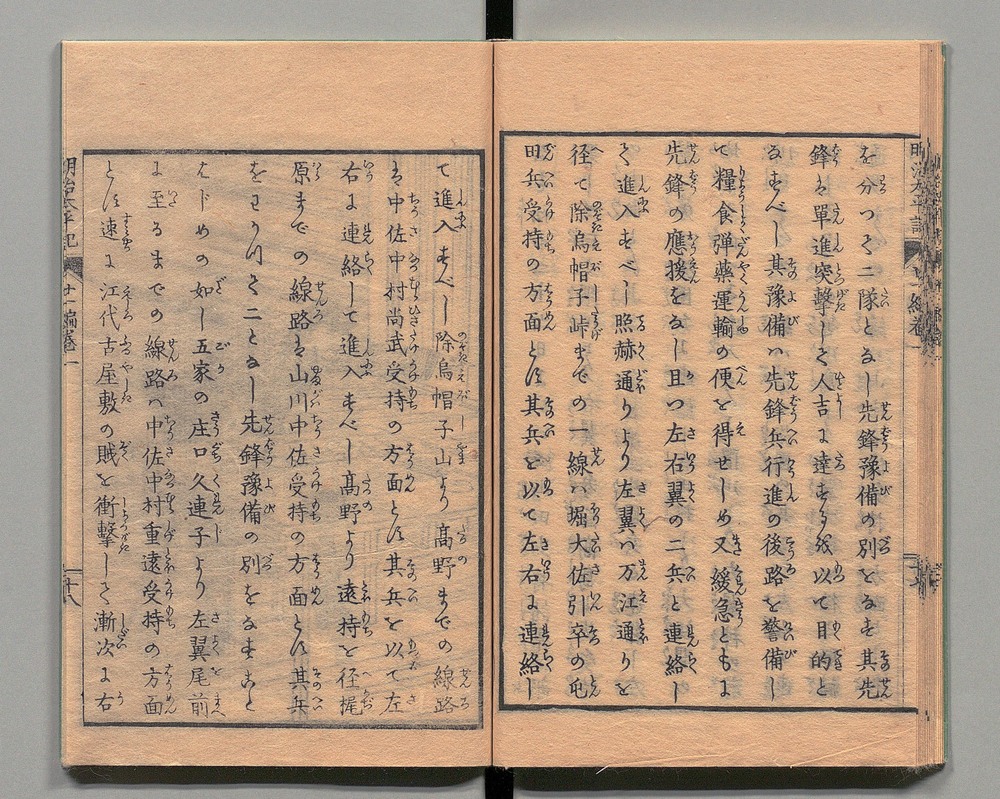 を分つて二隊となし先鋒豫備の別をなす其先
鋒は單進突擊して人吉に達するを以て目的と
なすべし其豫備ハ先鋒兵行進の後路を警備し
て糧食彈藥運輸の便を得せしめ又緩急ともに
先鋒の應援をなし且つ左右翼の二兵と連絡し
て進入すべし照赫通りより左翼ハ万江通りを
径て除烏帽子峠までの一線ハ堀大佐引卒の屯
田兵受持の方面とし其兵を以て左右に連絡し
て進入すべし除烏帽子山より髙野までの線路
は中佐中村尚武受持の方面とし其兵を以て左
右に連絡して進入すべし髙野より遠持を径梶
原までの線路は山川中佐受持の方面とし其兵
をわかつて二となし先鋒豫備の別をなすこと
はじめの如し五家の庄口久連子より左翼尾前
に至るまでの線路ハ中佐中村重遠受持の方面
とし速に江代古屋敷の賊を衝擊して漸次に右
明治太平記
十一編卷一
十八